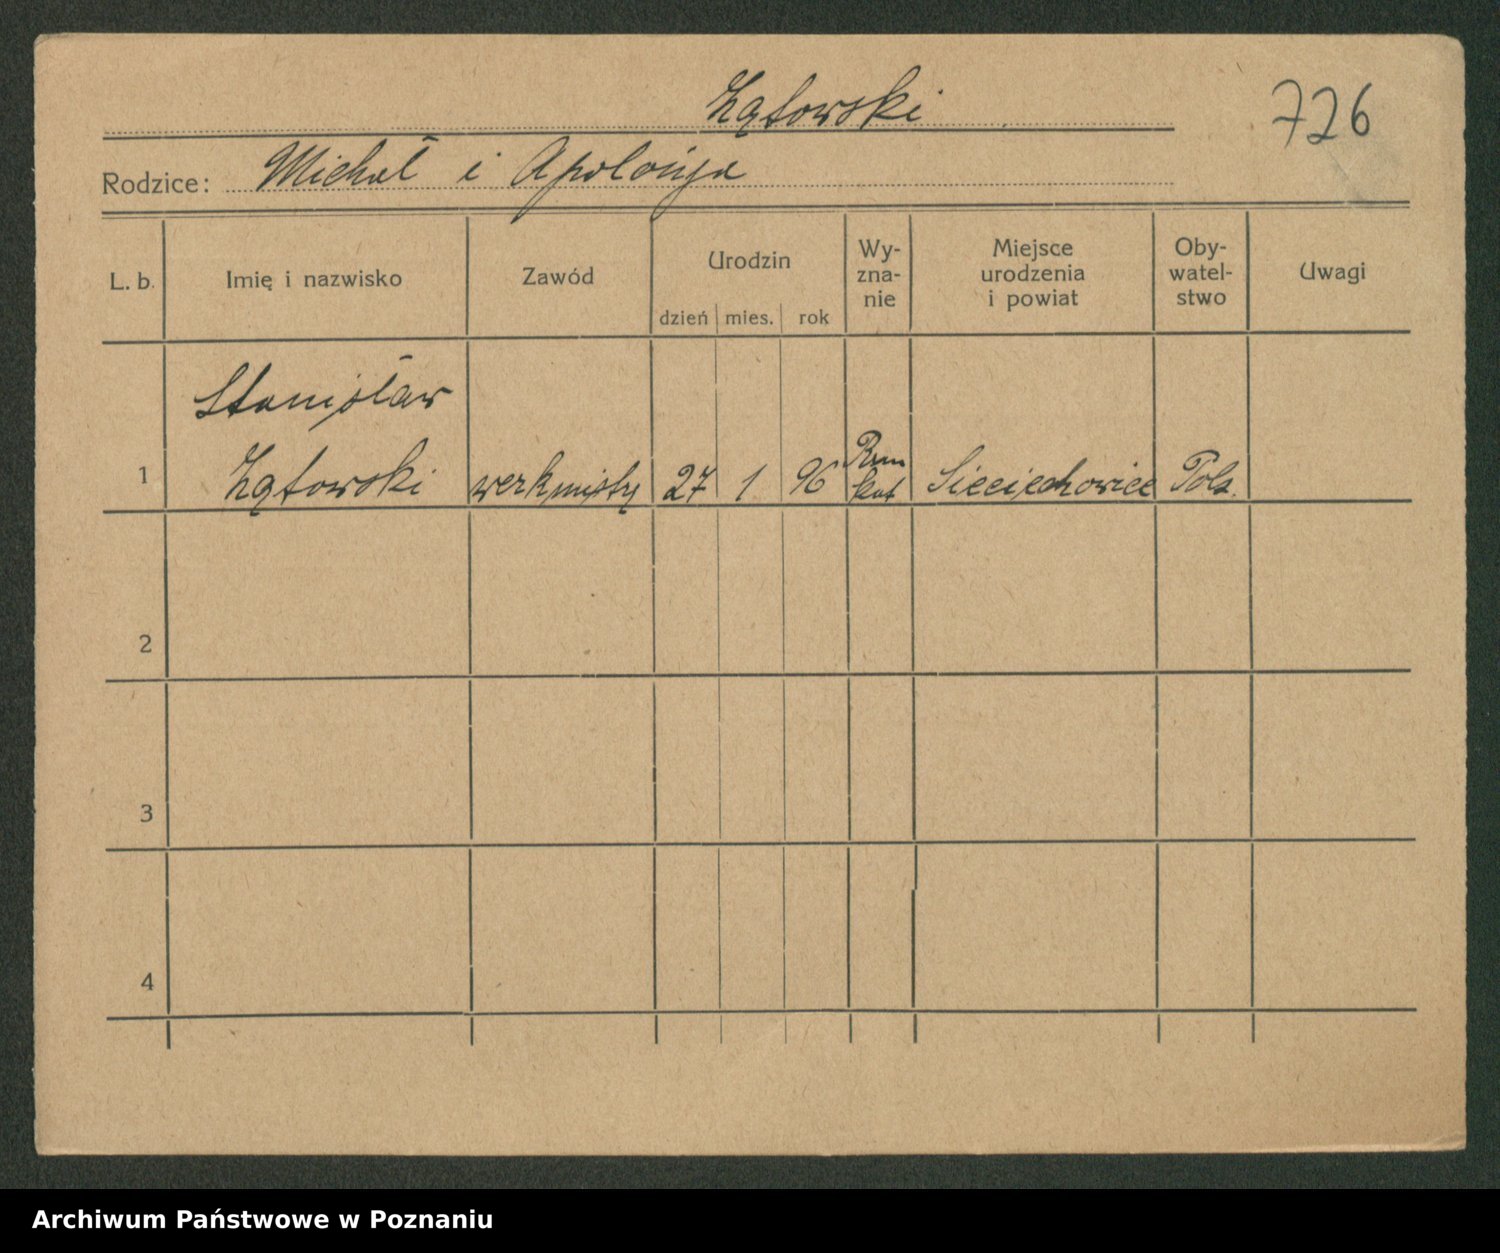 Zątowski
726
Rodzice: Michał i Apolonja
L. b. Imię i nazwisko Zawód Urodzin dzień mies. rok Wy-zna-nie Miejsce urodzenia i powiat Oby-watel-stwo Uwagi
Stanisław
1 Zątowski werkmistrz 27 1 96 Rzm kat Sieciechowice Pols.
2
3
4
Archiwum Państwowe w Poznaniu